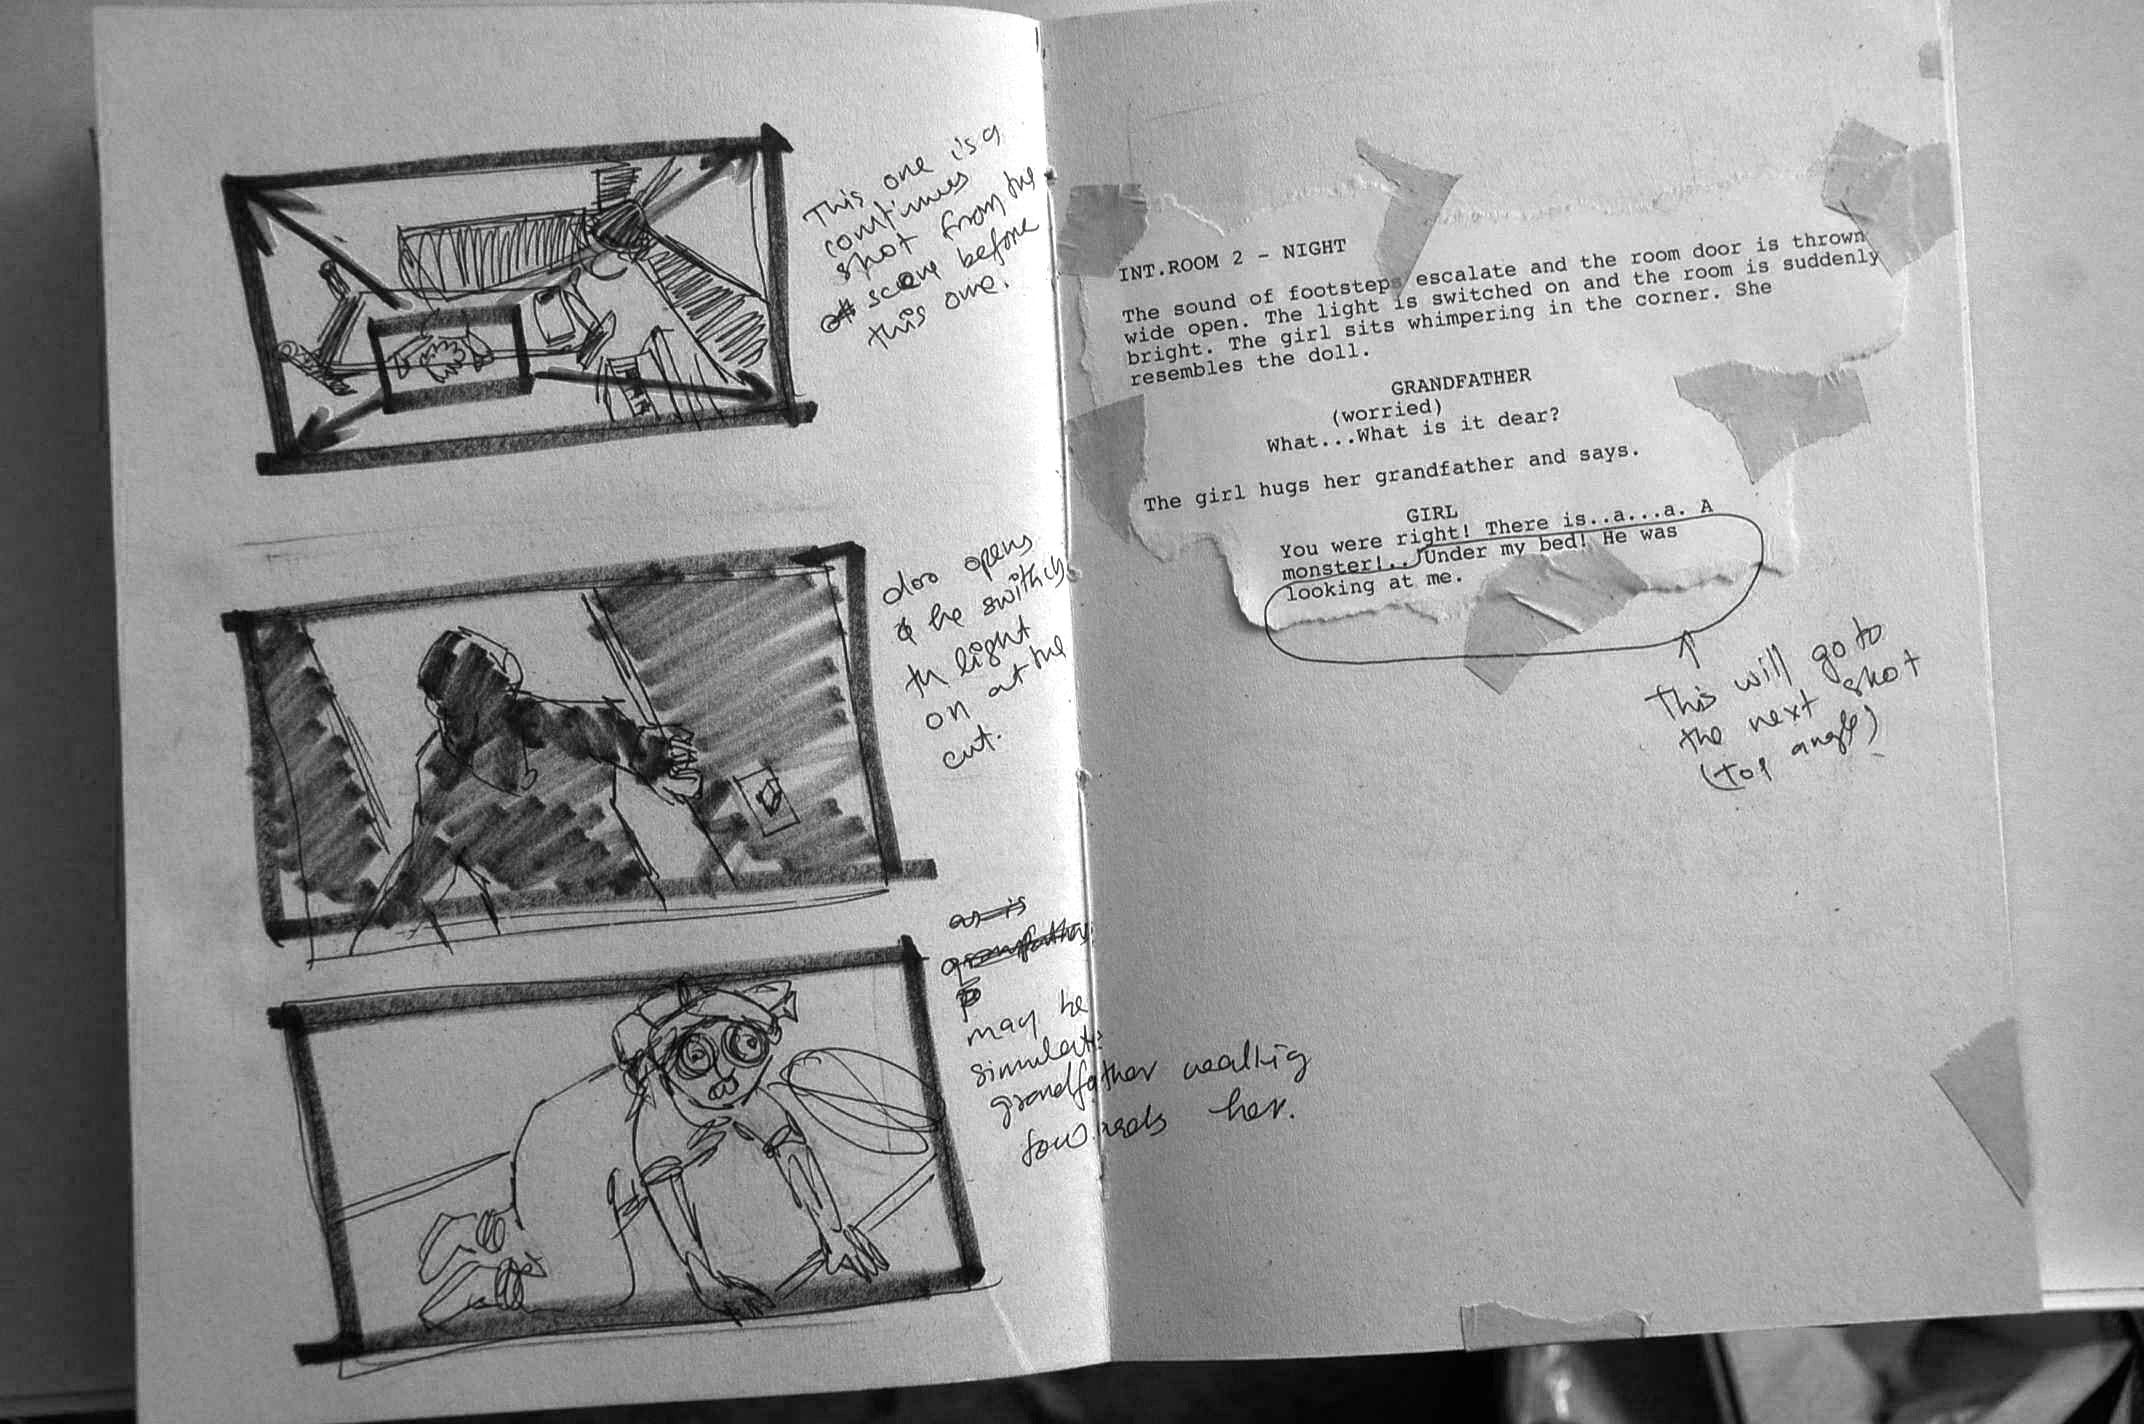 This one is a
continues
shot from the
scene before
this one.
door opens
& he switch
the light
on at the
cut.
as is
grandfather
may be
simulate
grandfather walking
towards her.
INT.ROOM 2 - NIGHT
The sound of footsteps escalate and the room door is thrown
wide open. The light is switched on and the room is suddenly
bright. The girl sits whimpering in the corner. She
resembles the doll.
GRANDFATHER
(worried)
What...What is it dear?
The girl hugs her grandfather and says.
GIRL
You were right! There is..a...a. A
monster!..Under my bed! He was
looking at me.
This will go to
the next shot
(top angle)